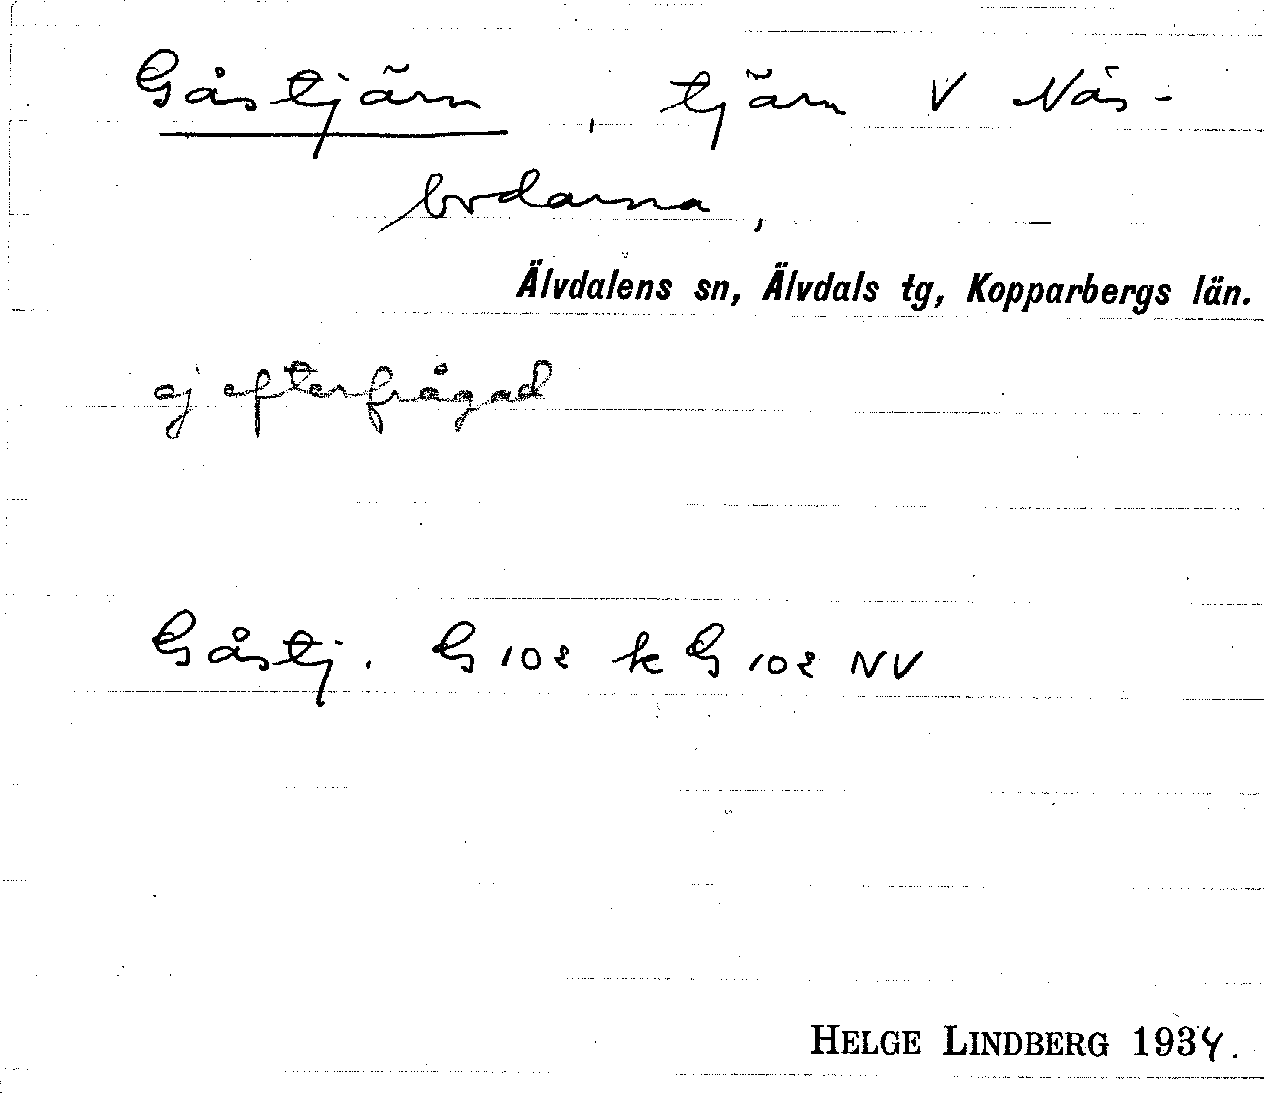 Gåstjärn, tjärn V Näs-
bodarna,
Älvdalens sn, Älvdals tg, Kopparbergs län.
ej efterfrågad
Gåstj. G 102 k G 102 NV
HELGE LINDBERG 1934.